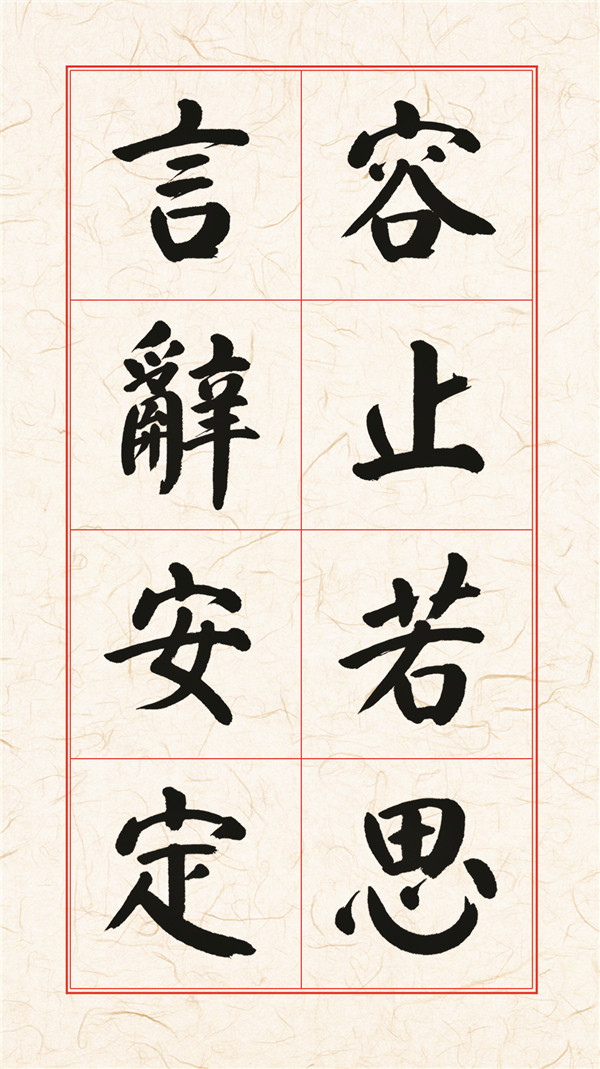 容止若思
言辭安定